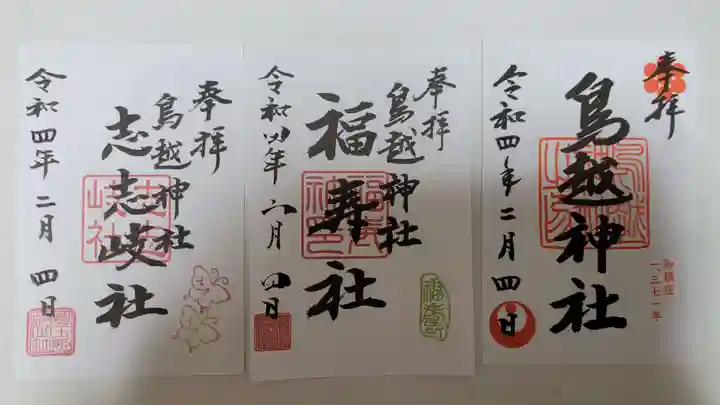 奉拝
鳥越神社
志志岐社
令和四年二月四日
志志
岐社
奉拝
鳥越神社
福寿社
令和四年二月四日
福寿
奉拝
鳥越神社
令和四年二月四日
御鎮座
一、三七一年